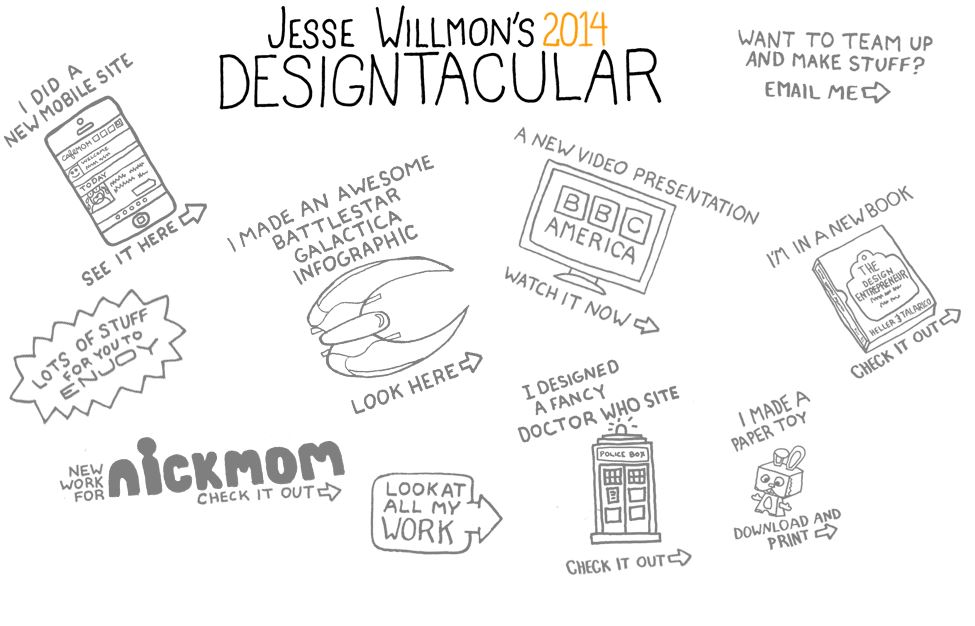 JESSE WILLMON'S 2014
DESIGNTACULAR
WANT TO TEAM UP
AND MAKE STUFF?
EMAIL ME
I DID A
NEW MOBILE SITE
CafeMOM
WELCOME
TODAY
SEE IT HERE
I MADE AN AWESOME
BATTLESTAR
GALACTICA
INFOGRAPHIC
LOOK HERE
A NEW VIDEO PRESENTATION
BBC
AMERICA
WATCH IT NOW
I'M IN A NEW BOOK
THE
DESIGN
ENTREPRENEUR
HELLER & TALARICO
CHECK IT OUT
LOTS OF STUFF
FOR YOU TO
ENJOY
NEW
WORK
FOR
nickmom
CHECK IT OUT
LOOK AT
ALL MY
WORK
I DESIGNED
A FANCY
DOCTOR WHO SITE
POLICE BOX
CHECK IT OUT
I MADE A
PAPER TOY
DOWNLOAD AND
PRINT